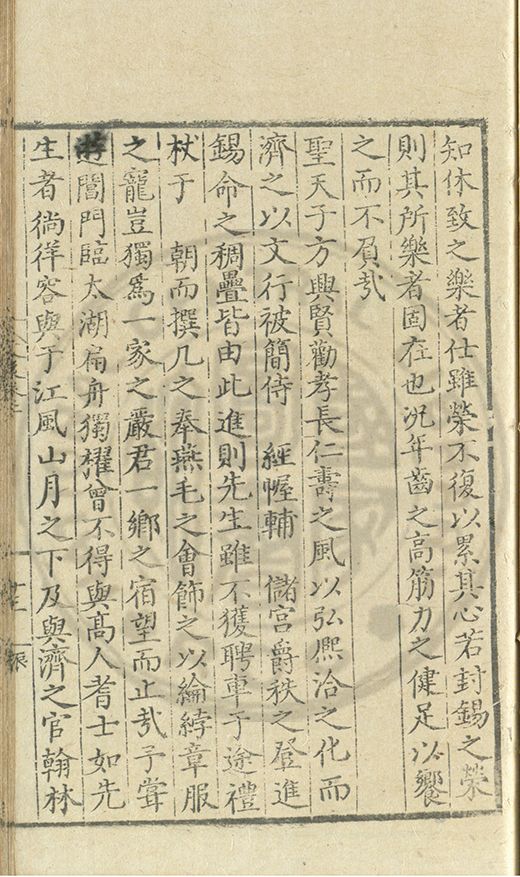 知休致之樂者仕雖榮不復以累其心若封錫之榮
則其所樂者固在也况年齒之高筋力之健足以饗
之而不負㢤
聖天子方興賢勸孝長仁壽之風以弘熈洽之化而
濟之以文行被簡侍 經幄輔 儲宫爵秩之登進
錫命之稠疊皆由此進則先生雖不獲聘車于途禮
杖于 朝而撰几之奉燕毛之會飾之以綸綍章服
之寵豈獨爲一家之嚴君一鄉之宿望而止㢤予甞
游閶門臨太湖扁舟獨櫂曾不得與髙人耆士如先
生者徜徉容與于江風山月之下及與濟之官翰林
十三
振